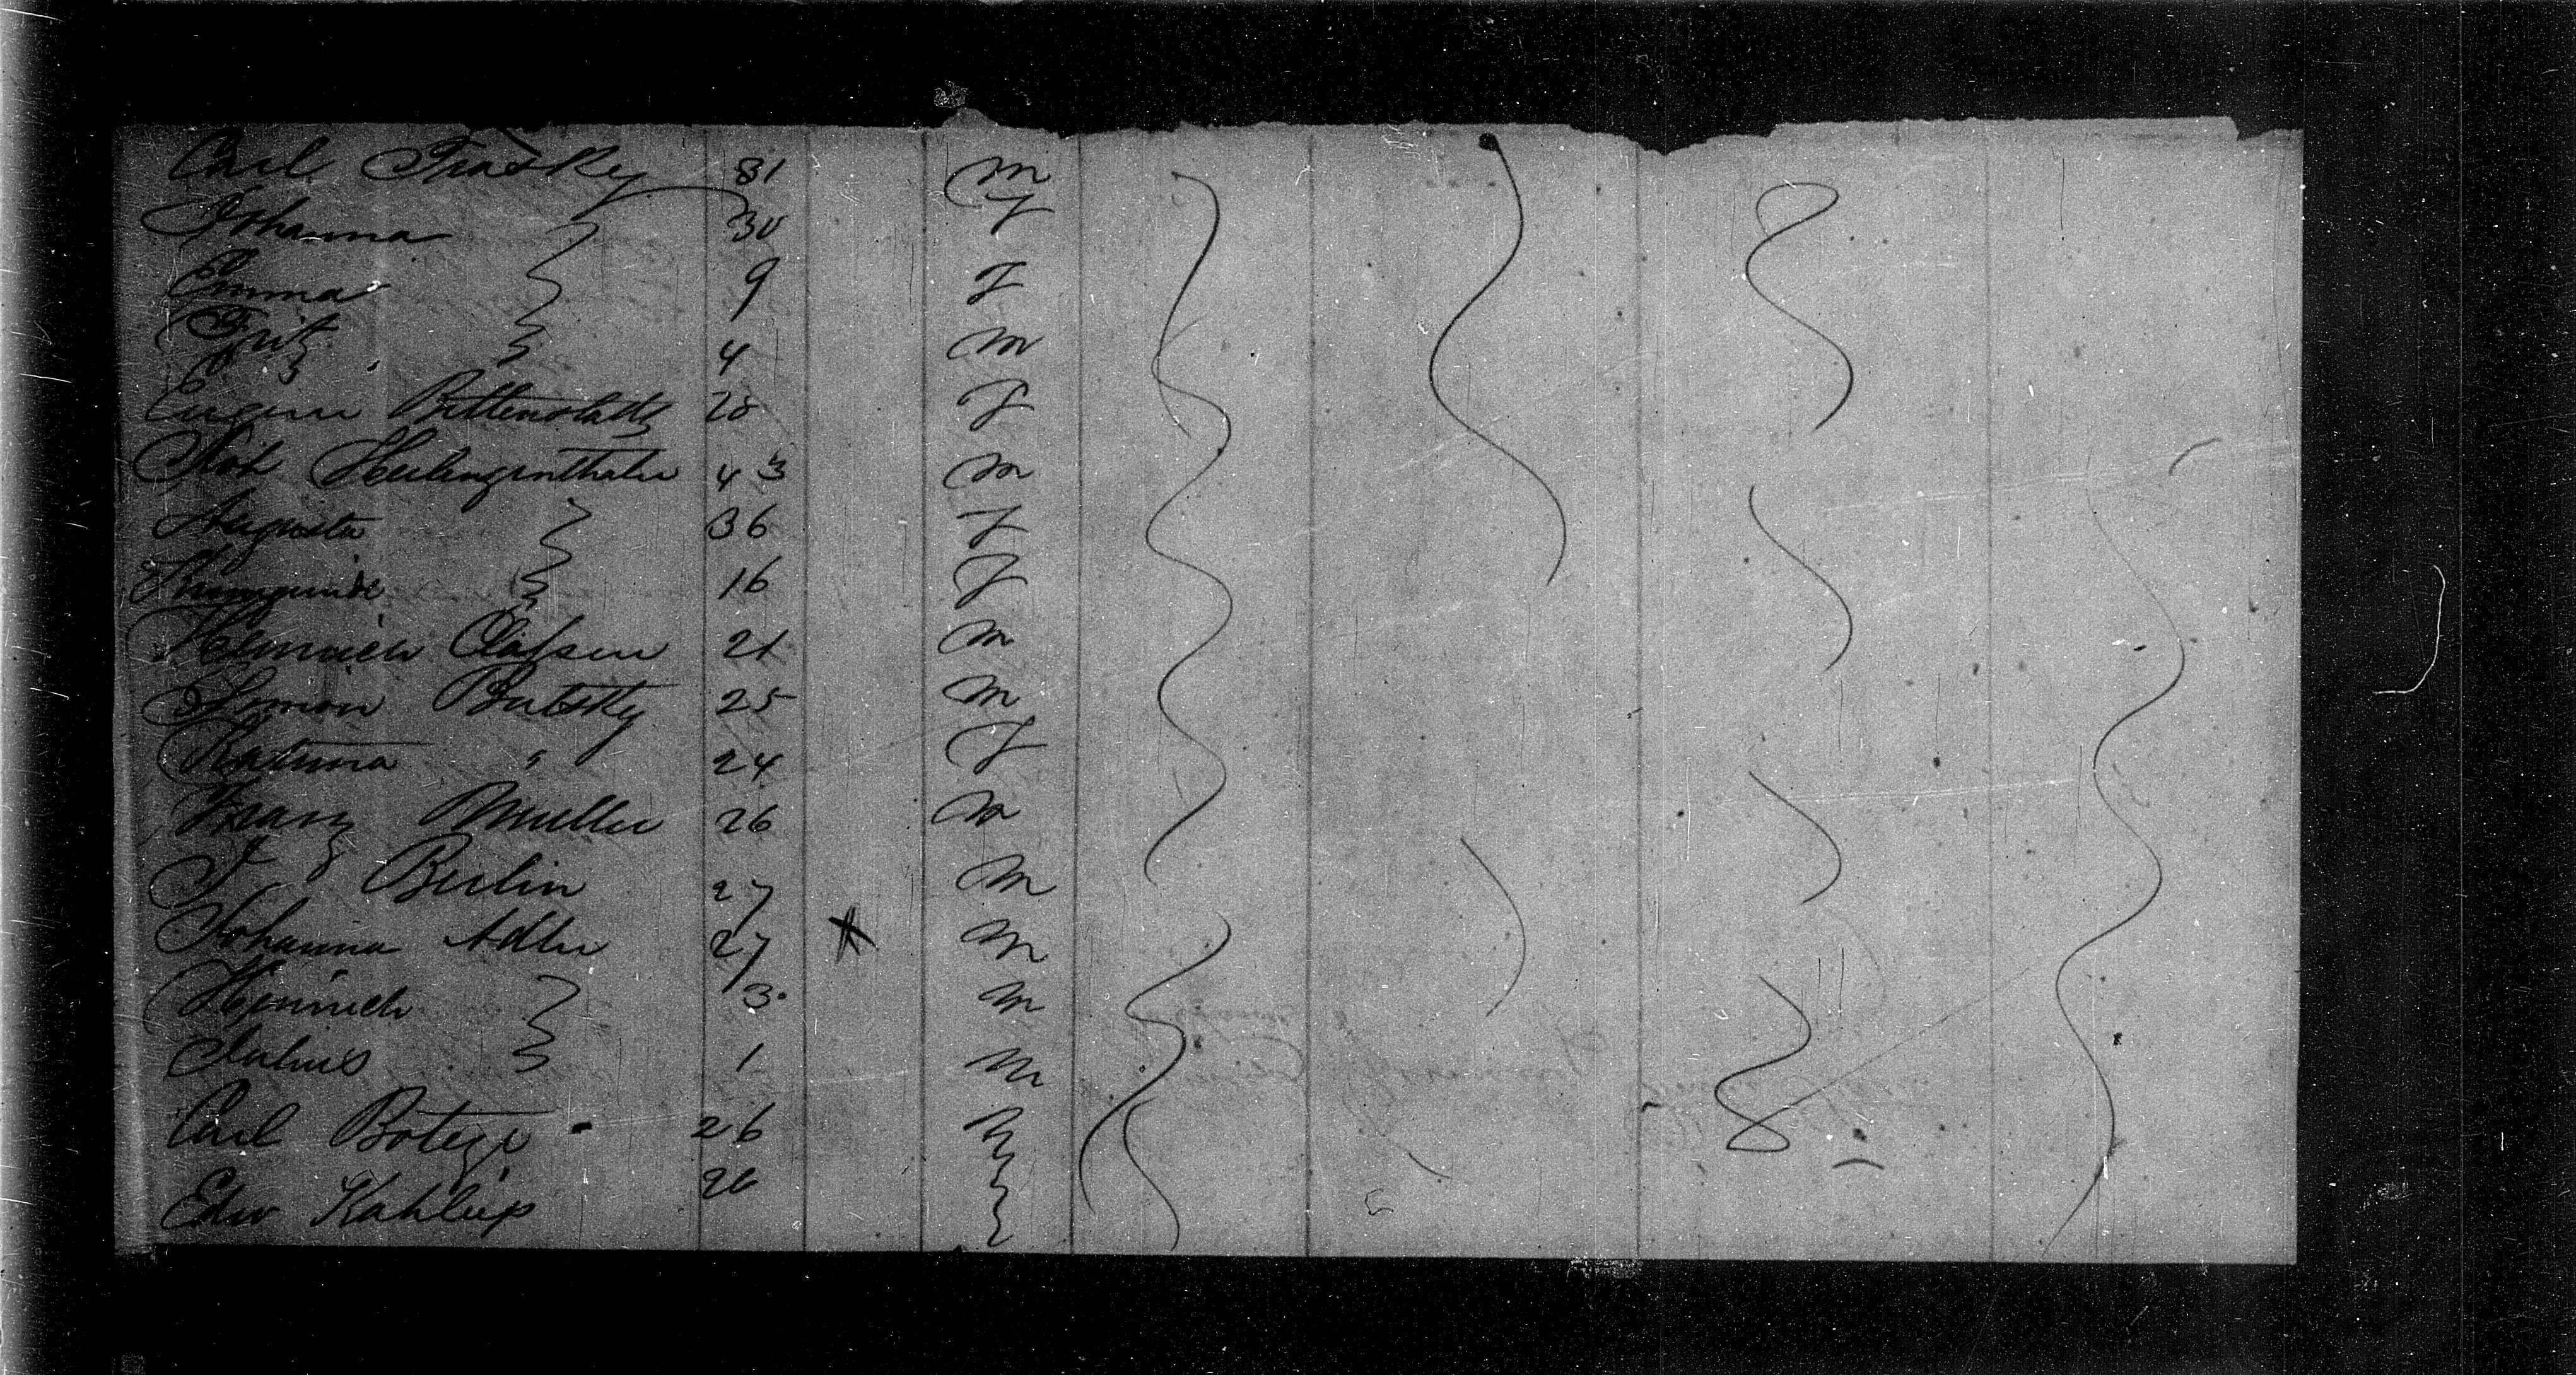 Carl Trasky 31 m
Johanna } 30 f
Emma } 9 f
Fritz } 4 m
Eugenie Bittenstadt 28 f
Joh Heiligenthaler 43 m
Augusta } 36 f
Kunigunde } 16 f
Heinrich Olafsen 21 m
Simon Butsky 25 m
Katrina " 24 f
Franz Mueller 26 m
J Berlin 27 m
Johanna Adler 27 X m
Heinrich } 3 m
Julius } 1 m
Carl Botege 26 m
Edw 26